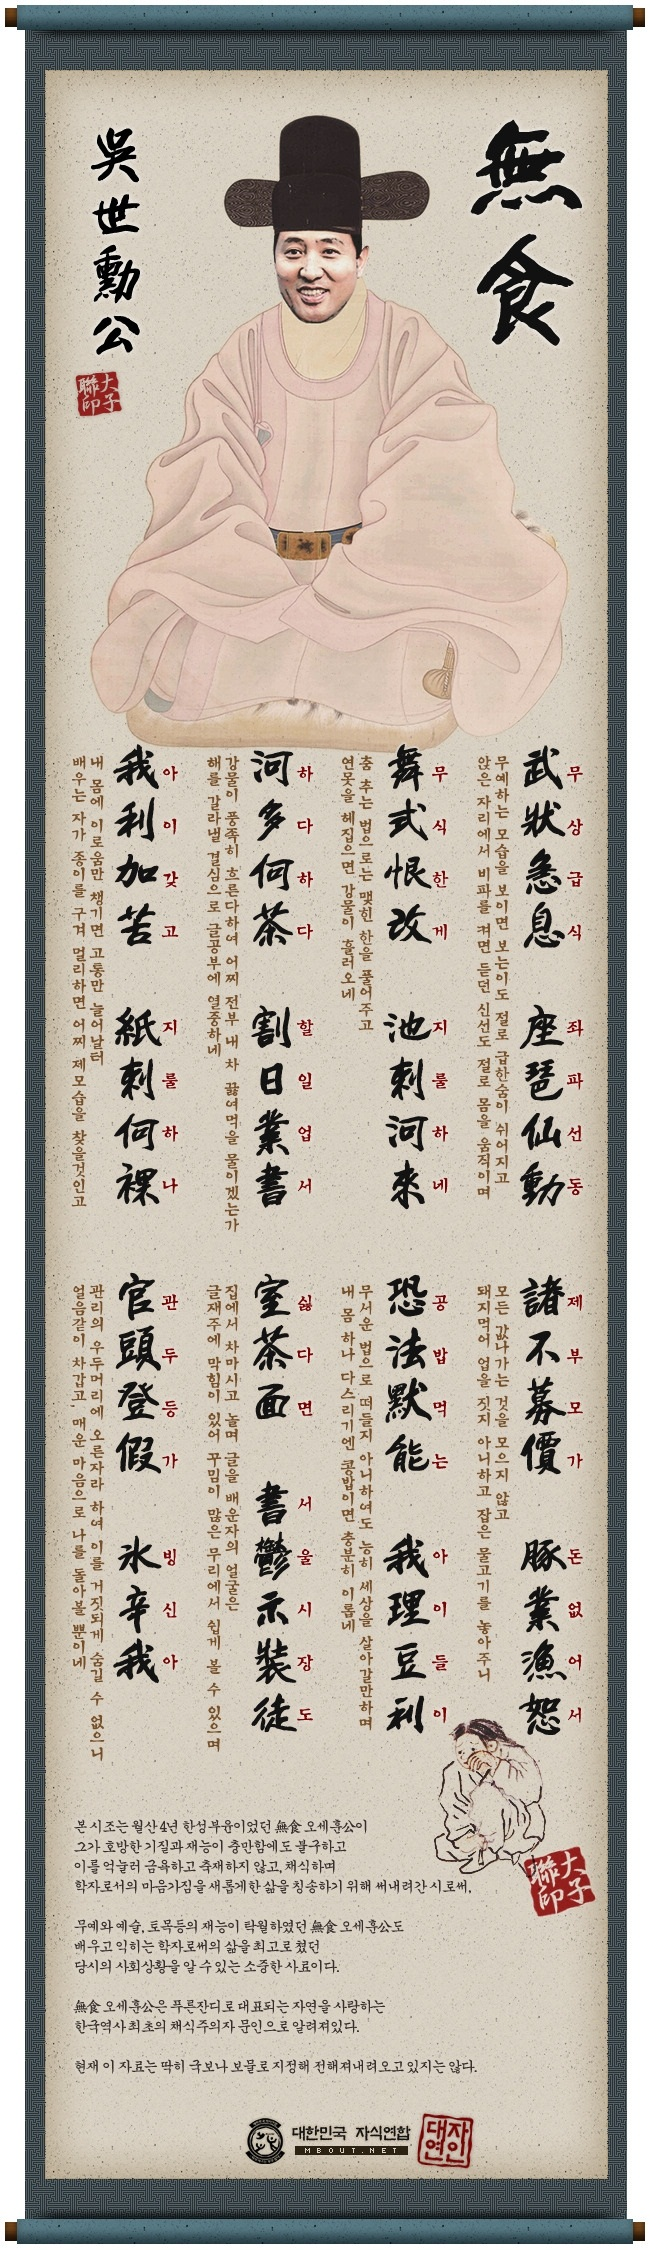 無食
吳世勳公
大子
聯印
武狀急息 座琶仙動
무상급식 좌파선동
무예하는 모습을 보이면 보는이도 절로 급한숨이 쉬어지고
앉은 자리에서 비파를 켜면 듣던 신선도 절로 몸을 움직이며
舞式恨改 池刺河來
무식한게 지룰하네
춤 추는 법으로는 맺힌 한을 풀어주고
연못을 헤집으면 강물이 흘러오네
河多何茶 割日業書
하다하다 할일업서
강물이 풍족히 흐른다하여 어찌 전부 내 차 끓여먹을 물이겠는가
해를 갈라낼 결심으로 글공부에 열중하네
我利加苦 紙刺何裸
아이갖고 지룰하나
내 몸에 이로움만 챙기면 고통만 늘어날터
배우는 자가 종이를 구겨 멀리하면 어찌 제모습을 찾을것인고
諸不募價 豚業漁恕
제부모가 돈없어서
모든 값나가는 것을 모으지 않고
돼지먹여 업을 짓지 아니하고 잡은 물고기를 놓아주니
恐法默能 我理豆利
공밥먹는 아이들이
무서운 법으로 떠들지 아니하여도 능히 세상을 살아갈만하며
내 몸 하나 다스리기엔 콩밥이면 충분히 이롭네
室茶面 書鬱示裝徒
싫다면 서울시장도
집에서 차마시고 놀며 글을 배운자의 얼굴은
글재주에 막힘이 있어 꾸밈이 많은 무리에서 쉽게 볼 수 있으며
官頭登假 氷辛我
관두등가 빙신아
관리의 우두머리에 오른자라 하여 이를 거짓되게 숨길 수 없으니
얼음같이 차갑고 매운 마음으로 나를 돌아볼 뿐이네
大子
聯印
본 시조는 월산 4년 한성부윤이었던 無食 오세훈公이
그가 호방한 기질과 재능이 충만함에도 불구하고
이를 억눌러 금욕하고 축재하지 않고, 채식하며
학자로서의 마음가짐을 새롭게한 삶을 칭송하기 위해 써내려간 시로써,
무예와 예술, 토목등의 재능이 탁월하였던 無食 오세훈公도
배우고 익히는 학자로써의 삶을 최고로 쳤던
당시의 사회상황을 알 수 있는 소중한 사료이다.
無食 오세훈公은 푸른잔디로 대표되는 자연을 사랑하는
한국역사 최초의 채식주의자 문인으로 알려져있다.
현재 이 자료는 딱히 국보나 보물로 지정해 전해져내려오고 있지는 않다.
대한민국 자식연합
MBOUT.NET
대자
연인